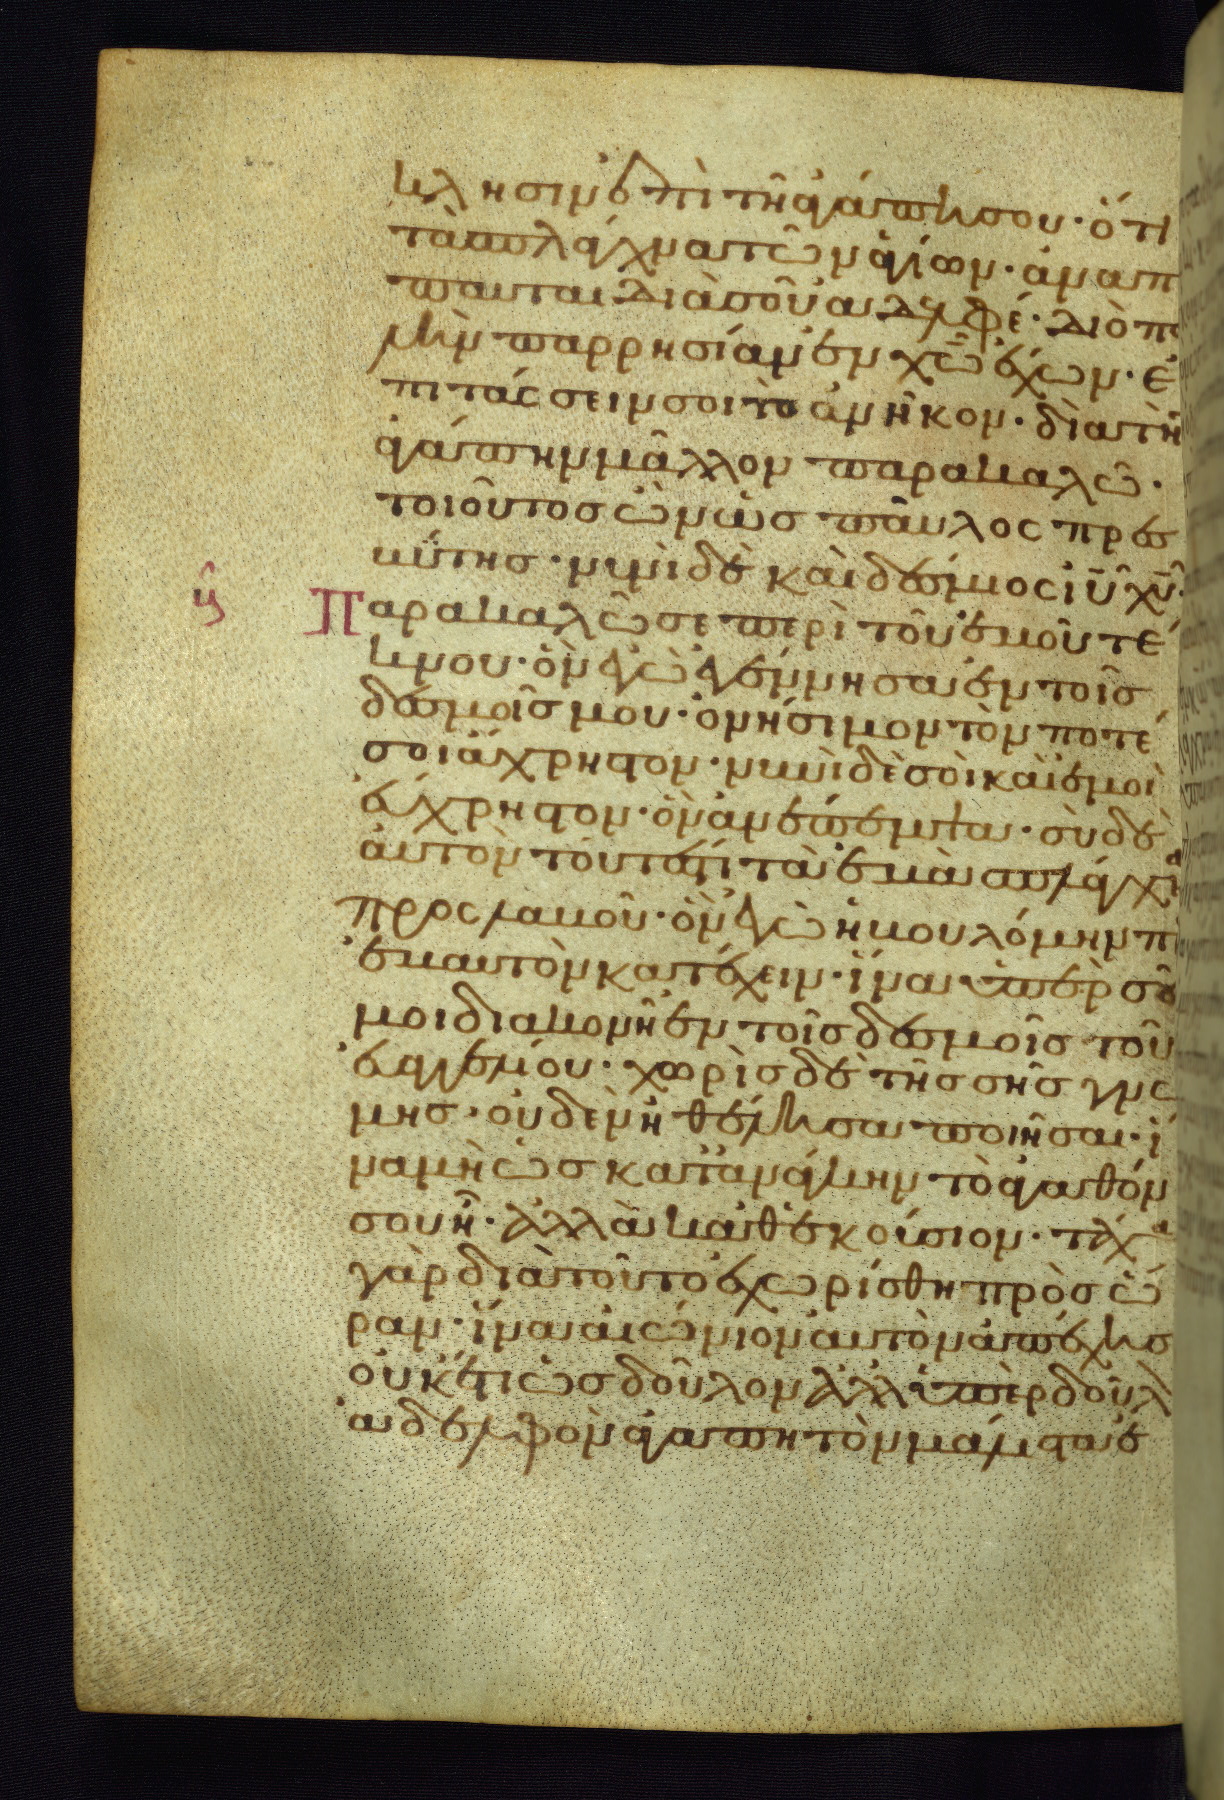 κλησιν ἐπὶ τῆ ἀγάπη σου· ὅτι
τὰ σπλάγχνα τῶν ἁγίων· ἀναπέ
παυται διὰ σοῦ ἀδελφέ· διὸ πο
λλὴν παρρησίαν ἐν χω̅ ἔχων· ἐ
πιτάσσειν σοι τὸ ἀνῆκον· διὰ τὴν
ἀγάπην μᾶλλον παρακαλῶ·
τοιοῦτος ὢν ὡς παῦλος πρεσ
βύτης· νυνὶ δὲ καὶ δέσμιος ιυ̅ χυ̅·
Παρακαλῶ σε περὶ τοῦ ἐμοῦ τέ
κνου· ὃν ἐγὼ ἐγέννησα ἐν τοῖς
δεσμοῖς μου· ὀνήσιμον τὸν ποτέ
σοι ἄχρηστον· νυνὶ δὲ σοὶ καὶ ἐμοὶ
εὔχρηστον· ὃν ἀνέπεμψα· σὺ δὲ
αὐτὸν τουτέστι τὰ ἐμὰ σπλάγχνα
προσλαβοῦ· ὃν ἐγὼ ἠβουλόμην πρ
ἐμαυτὸν κατέχειν· ἵνα ὑπὲρ σοῦ
μοι διακονῆ ἐν τοῖς δεσμοῖς τοῦ
εὐαγγελίου· χωρὶς δὲ τῆς σῆς γνώ
μης· οὐδὲν ἠθέλησα ποιῆσαι· ἵ
να μὴ ὡς κατὰ ἀνάγκην τὸ ἀγαθόν
σου ῆ· ἀλλὰ καθ' ἑκούσιον· τάχα
γὰρ διὰ τοῦτο ἐχωρίσθη πρὸς ὥ
ραν· ἵνα αἰώνιον αὐτὸν ἀπέχης
οὐκέτι ὡς δοῦλον ἀλλ' ὑπὲρ δοῦλ
ἀδελφὸν ἀγαπητὸν μάλιστα ἐ